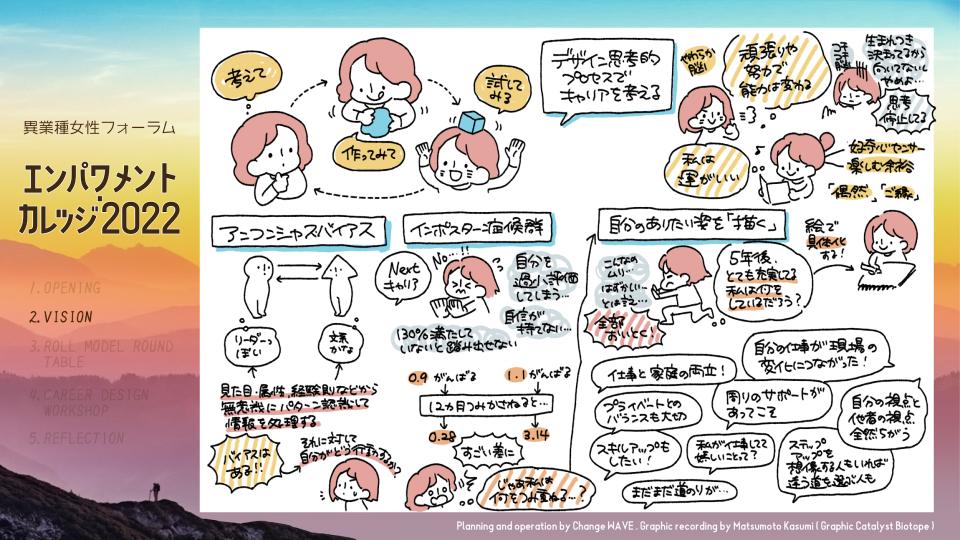 異業種女性フォーラム
エンパワメント・
カレッジ2022
1.OPENING
2.VISION
3.ROLL MODEL ROUND
TABLE
4.CAREER DESIGN
WORKSHOP
5.REFLECTION
考えて
作ってみて
試して
みる
デザイン思考的
プロセスで
キャリアを考える
やわらか
脳
頑張りや
努力で
能力は変わる
コチコチ
脳
生まれつき
決まってるから
向いてないし
やめよ…
思考
停止してる
私は
運がいい
好奇心センサー
楽しむ余裕
「偶然」「ご縁」
アンコンシャスバイアス
リーダーっ
ぽい
文系
かな
見た目・属性、経験則などから
無意識にパターン認識して
情報を処理する
バイアスは
ある!!
それに対して
自分がどう行動するか?
インポスター症候群
Next
キャリア
No…!!
自分を
過小評価
してしまう…
自信が
持てない…
130%満たして
いないと踏み出せない
0.9 がんばる
1.1 がんばる
12カ月つみかさねると…
0.28
3.14
すごい差に
じゃあ私は
何をつみ重ねる…?
自分のありたい姿を「描く」
こんなの
ムリ…
はずかしい…
とは言え…
全部
おいといて!
5年後、
とても充実してる
私は何を
しているだろう?
絵で
具体化
する!
仕事と家庭の両立!
自分の仕事が現場の
変化につながった!
プライベートとの
バランスも大切
周りのサポートが
あってこそ
自分の視点と
他者の視点
全然ちがう
スキルアップも
したい!
私が仕事してて
嬉しいことって?
ステップ
アップを
想像する人もいれば
違う道を選ぶ人も
まだまだ道のりが…
Planning and operation by Change WAVE . Graphic recording by Matsumoto Kasumi ( Graphic Catalyst Biotope )